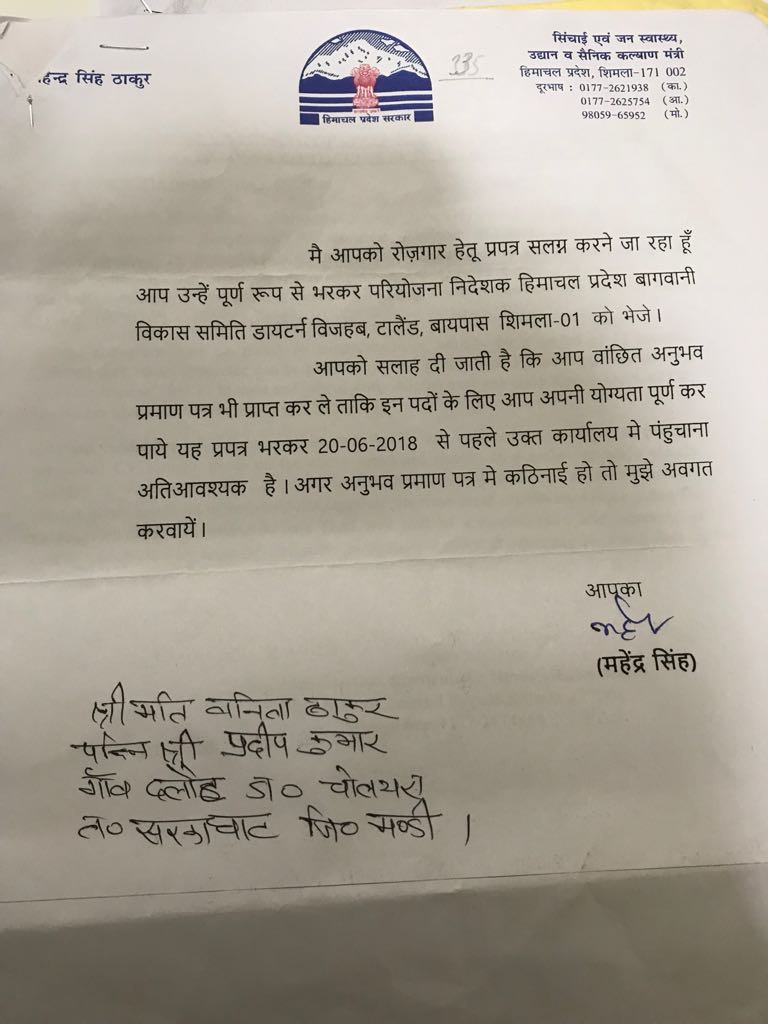 हेन्द्र सिंह ठाकुर
हिमाचल प्रदेश सरकार
335
सिंचाई एवं जन स्वास्थ्य,
उद्यान व सैनिक कल्याण मंत्री
हिमाचल प्रदेश, शिमला-171 002
दूरभाष : 0177-2621938 (का.)
0177-2625754 (आ.)
98059-65952 (मो.)
मै आपको रोज़गार हेतू प्रपत्र सलग्न करने जा रहा हूँ
आप उन्हें पूर्ण रूप से भरकर परियोजना निदेशक हिमाचल प्रदेश बागवानी
विकास समिति डायटर्न विजहब, टालैंड, बायपास शिमला-01 को भेजे।
आपको सलाह दी जाती है कि आप वांछित अनुभव
प्रमाण पत्र भी प्राप्त कर ले ताकि इन पदों के लिए आप अपनी योग्यता पूर्ण कर
पाये यह प्रपत्र भरकर 20-06-2018 से पहले उक्त कार्यालय मे पंहुचाना
अतिआवश्यक है। अगर अनुभव प्रमाण पत्र मे कठिनाई हो तो मुझे अवगत
करवायें।
आपका
(महेंद्र सिंह)
श्रीमति वनिता ठाकुर
पत्नि श्री प्रदीप कुमार
गाँव डा० चोलथरा
त० सरकाघाट जि० मण्डी।